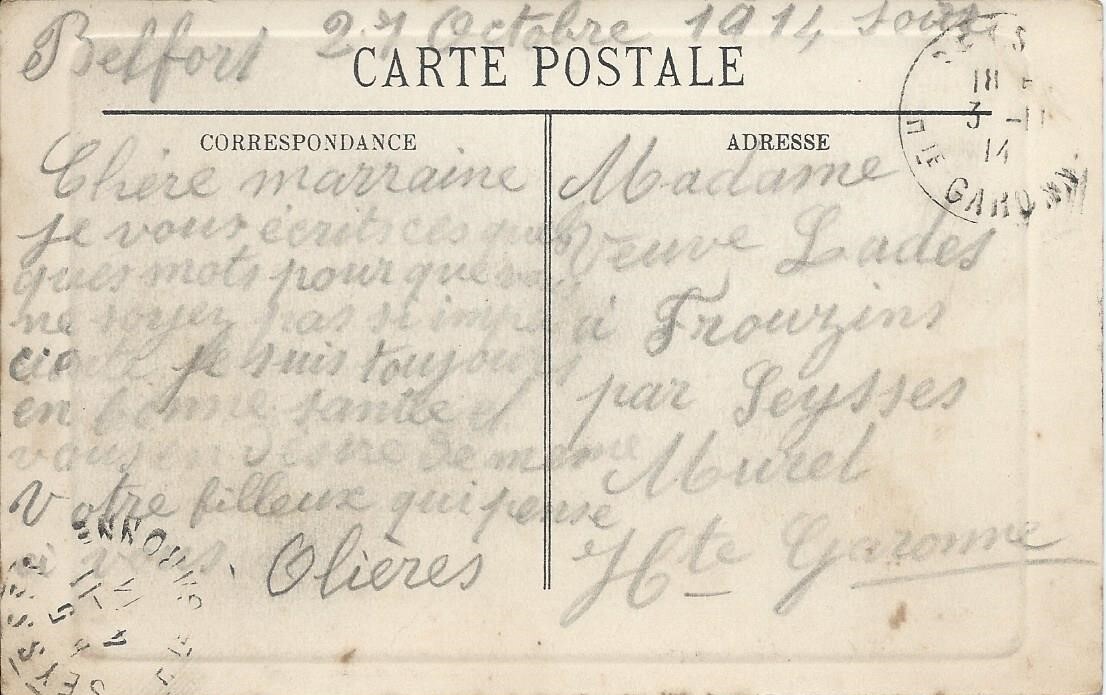 Belfort 27 Octobre 1914
CARTE POSTALE
CORRESPONDANCE
Chère marraine
je vous écrits ces quel
ques mots pour que vous
ne soyez pas si impa
ciante je suis toujours
en bonne santée et
vous en désire de même
Votre filleux qui pense
à vous
Olières
ADRESSE
Madame
Veuve Lades
à Frouzins
par Seysses
Muret
Hte Garonne
18
3 -11
14
GARONNE
SEYSSES